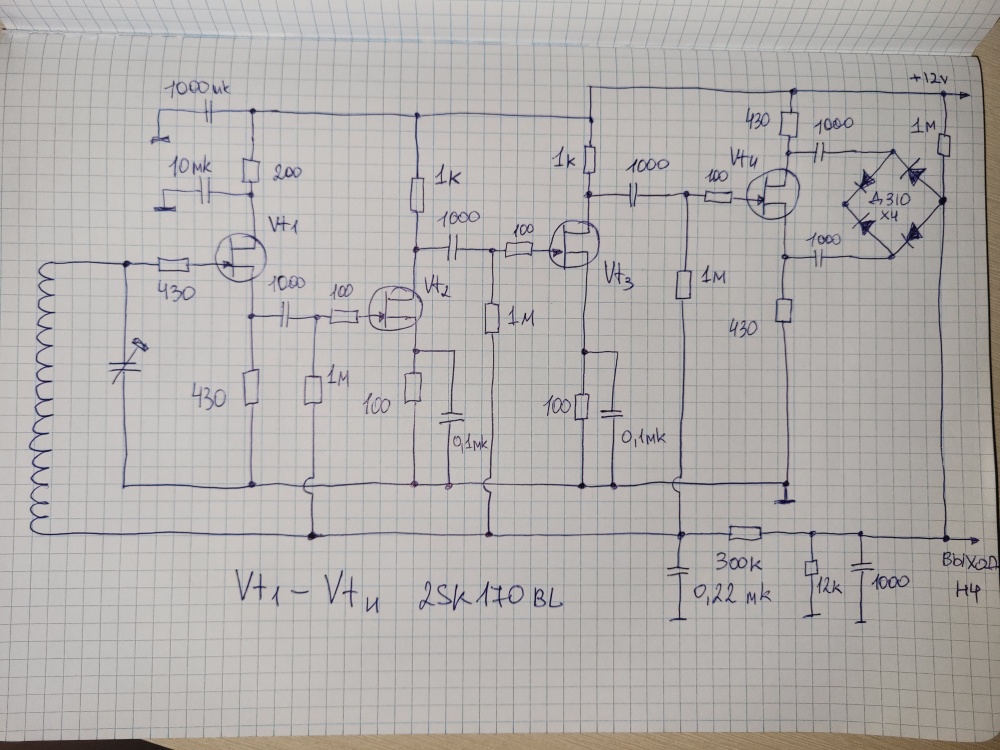 1000мк
+12v
430
1000
1М
10мк
200
1к
1к
1000
Vt4
100
Д310
х4
Vt1
1000
100
1000
430
1000
100
Vt2
Vt3
1М
1М
430
430
1М
100
0,1мк
100
0,1мк
ВЫХОД
НЧ
300к
0,22 мк
12к
1000
Vt1 – Vt4 2SK170BL